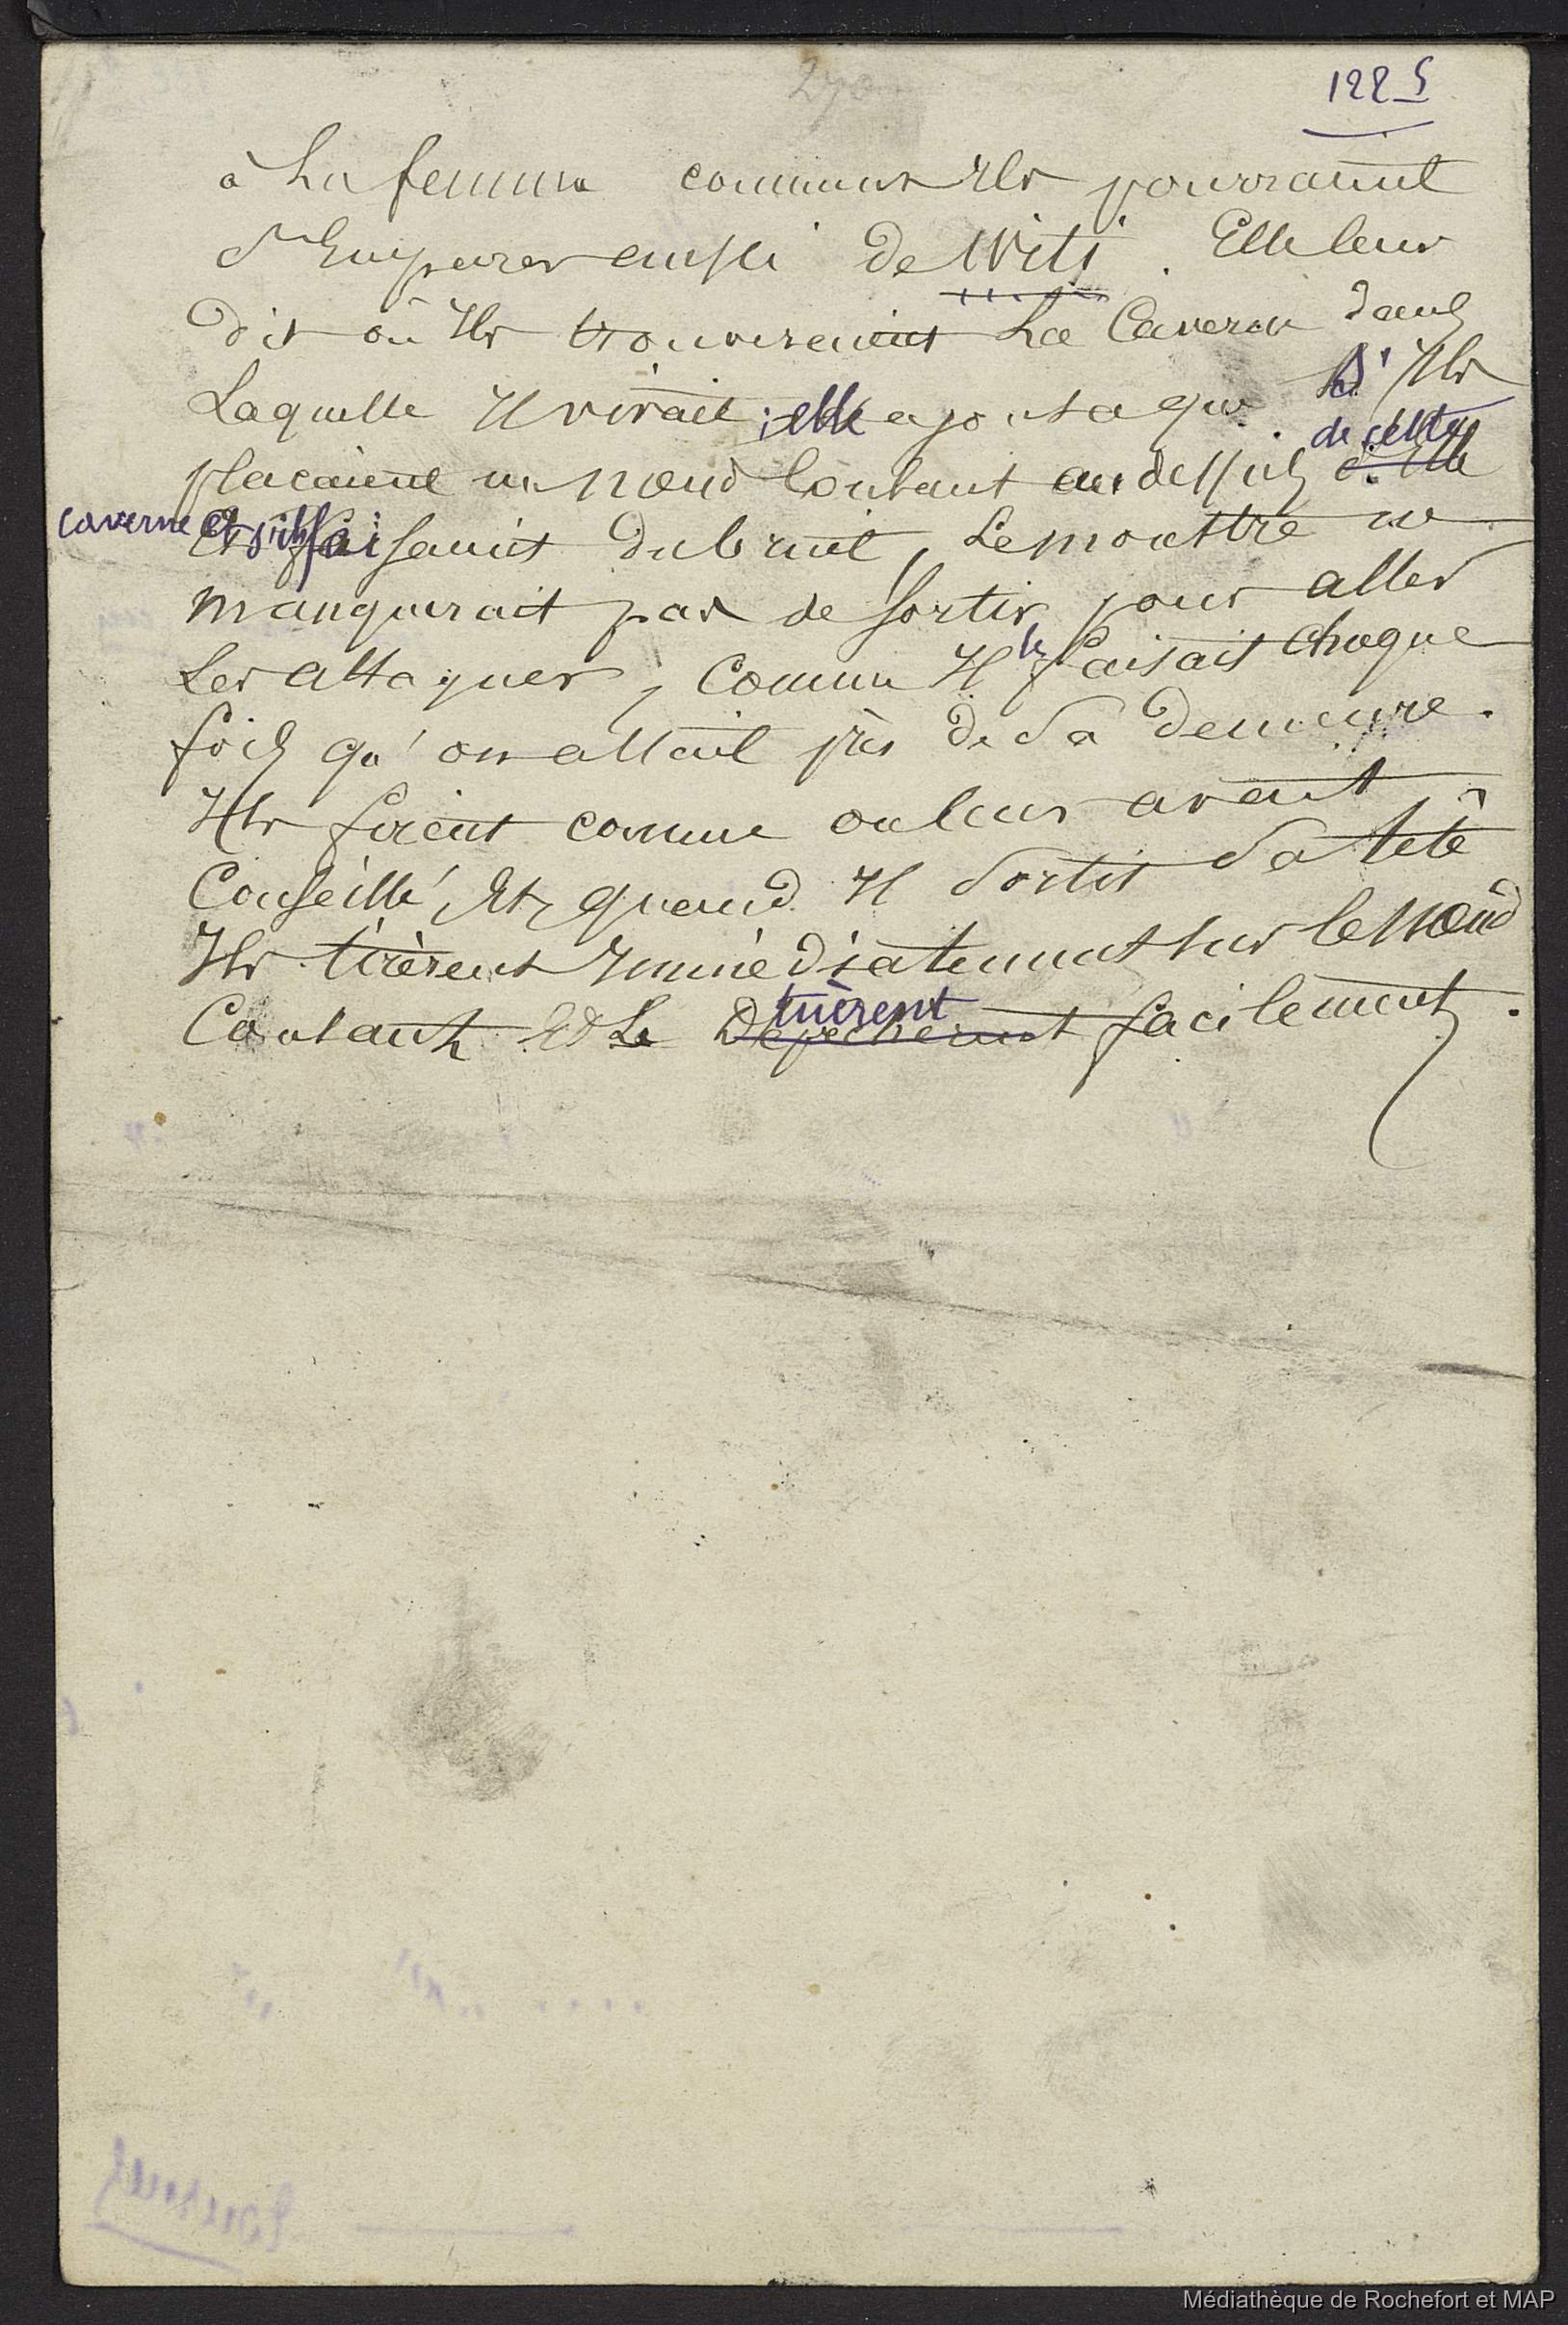 270
122 5
à la femme comment Ils pourraient
s'Emparer aussi de Witi. Elle leur
dit où Ils trouveraient La Caverne dans
Laquelle Il vivait ; elle ajouta que s'Ils
de cette
plaçaient un noeud Coulant au dessus d'elle
caverne et s'ils faisaient du bruit, Le monstre ne
manquerait pas de sortir pour aller
Les attaquer, Comme Il le faisait chaque
fois qu'on allait près de Sa demeure.
Ils firent comme on leur avait
Conseillé, Et quand Il Sortit Sa tête
Ils tirèrent Immédiatement sur le noeud
tuèrent
Coulant Et Le Dépechèrent facilement.
Médiathèque de Rochefort et MAP